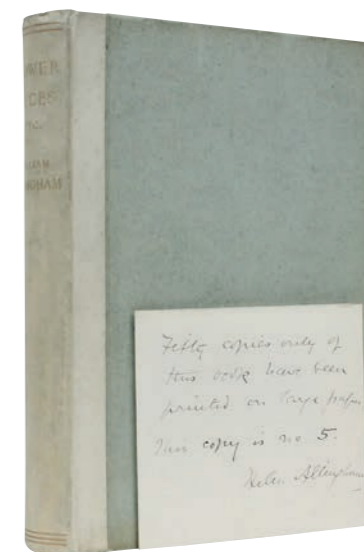 WER
CES
ETC.
IAM
NGHAM
Fifty copies only of
this book have been
printed on large paper
This copy is no 5.
Helen Allingham